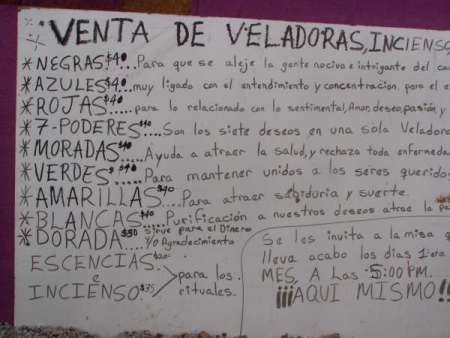 VENTA DE VELADORAS, INCIENSO
* NEGRAS $40... Para que se aleje la gente nociva e intrigante del
* AZULES $40... muy ligado con el entendimiento y concentracion. para el
* ROJAS $40... para lo relacionado con lo sentimental, Amor, deseo, pasión, y
* 7-PODERES $40.... Son los siete deseos en una sola Veladora
* MORADAS $40.... Ayuda a atraer la salud, y rechaza toda enfermedad
* VERDES $40..... Para mantener unidos a los seres queridos
* AMARILLAS $40.... Para atraer sabiduria y suerte.
* BLANCAS $40.... Purificación a nuestros deseos atrae la
* DORADA.... $50 sirve para el Dinero
Y/O Agradecimiento
ESCENCIAS. $20
e
INCIENSO. $35
para los
rituales.
Se les invita a la misa
lleva acabo los dias 1ero
MES, A LAS 5:00 PM.
¡¡¡AQUI MISMO!!